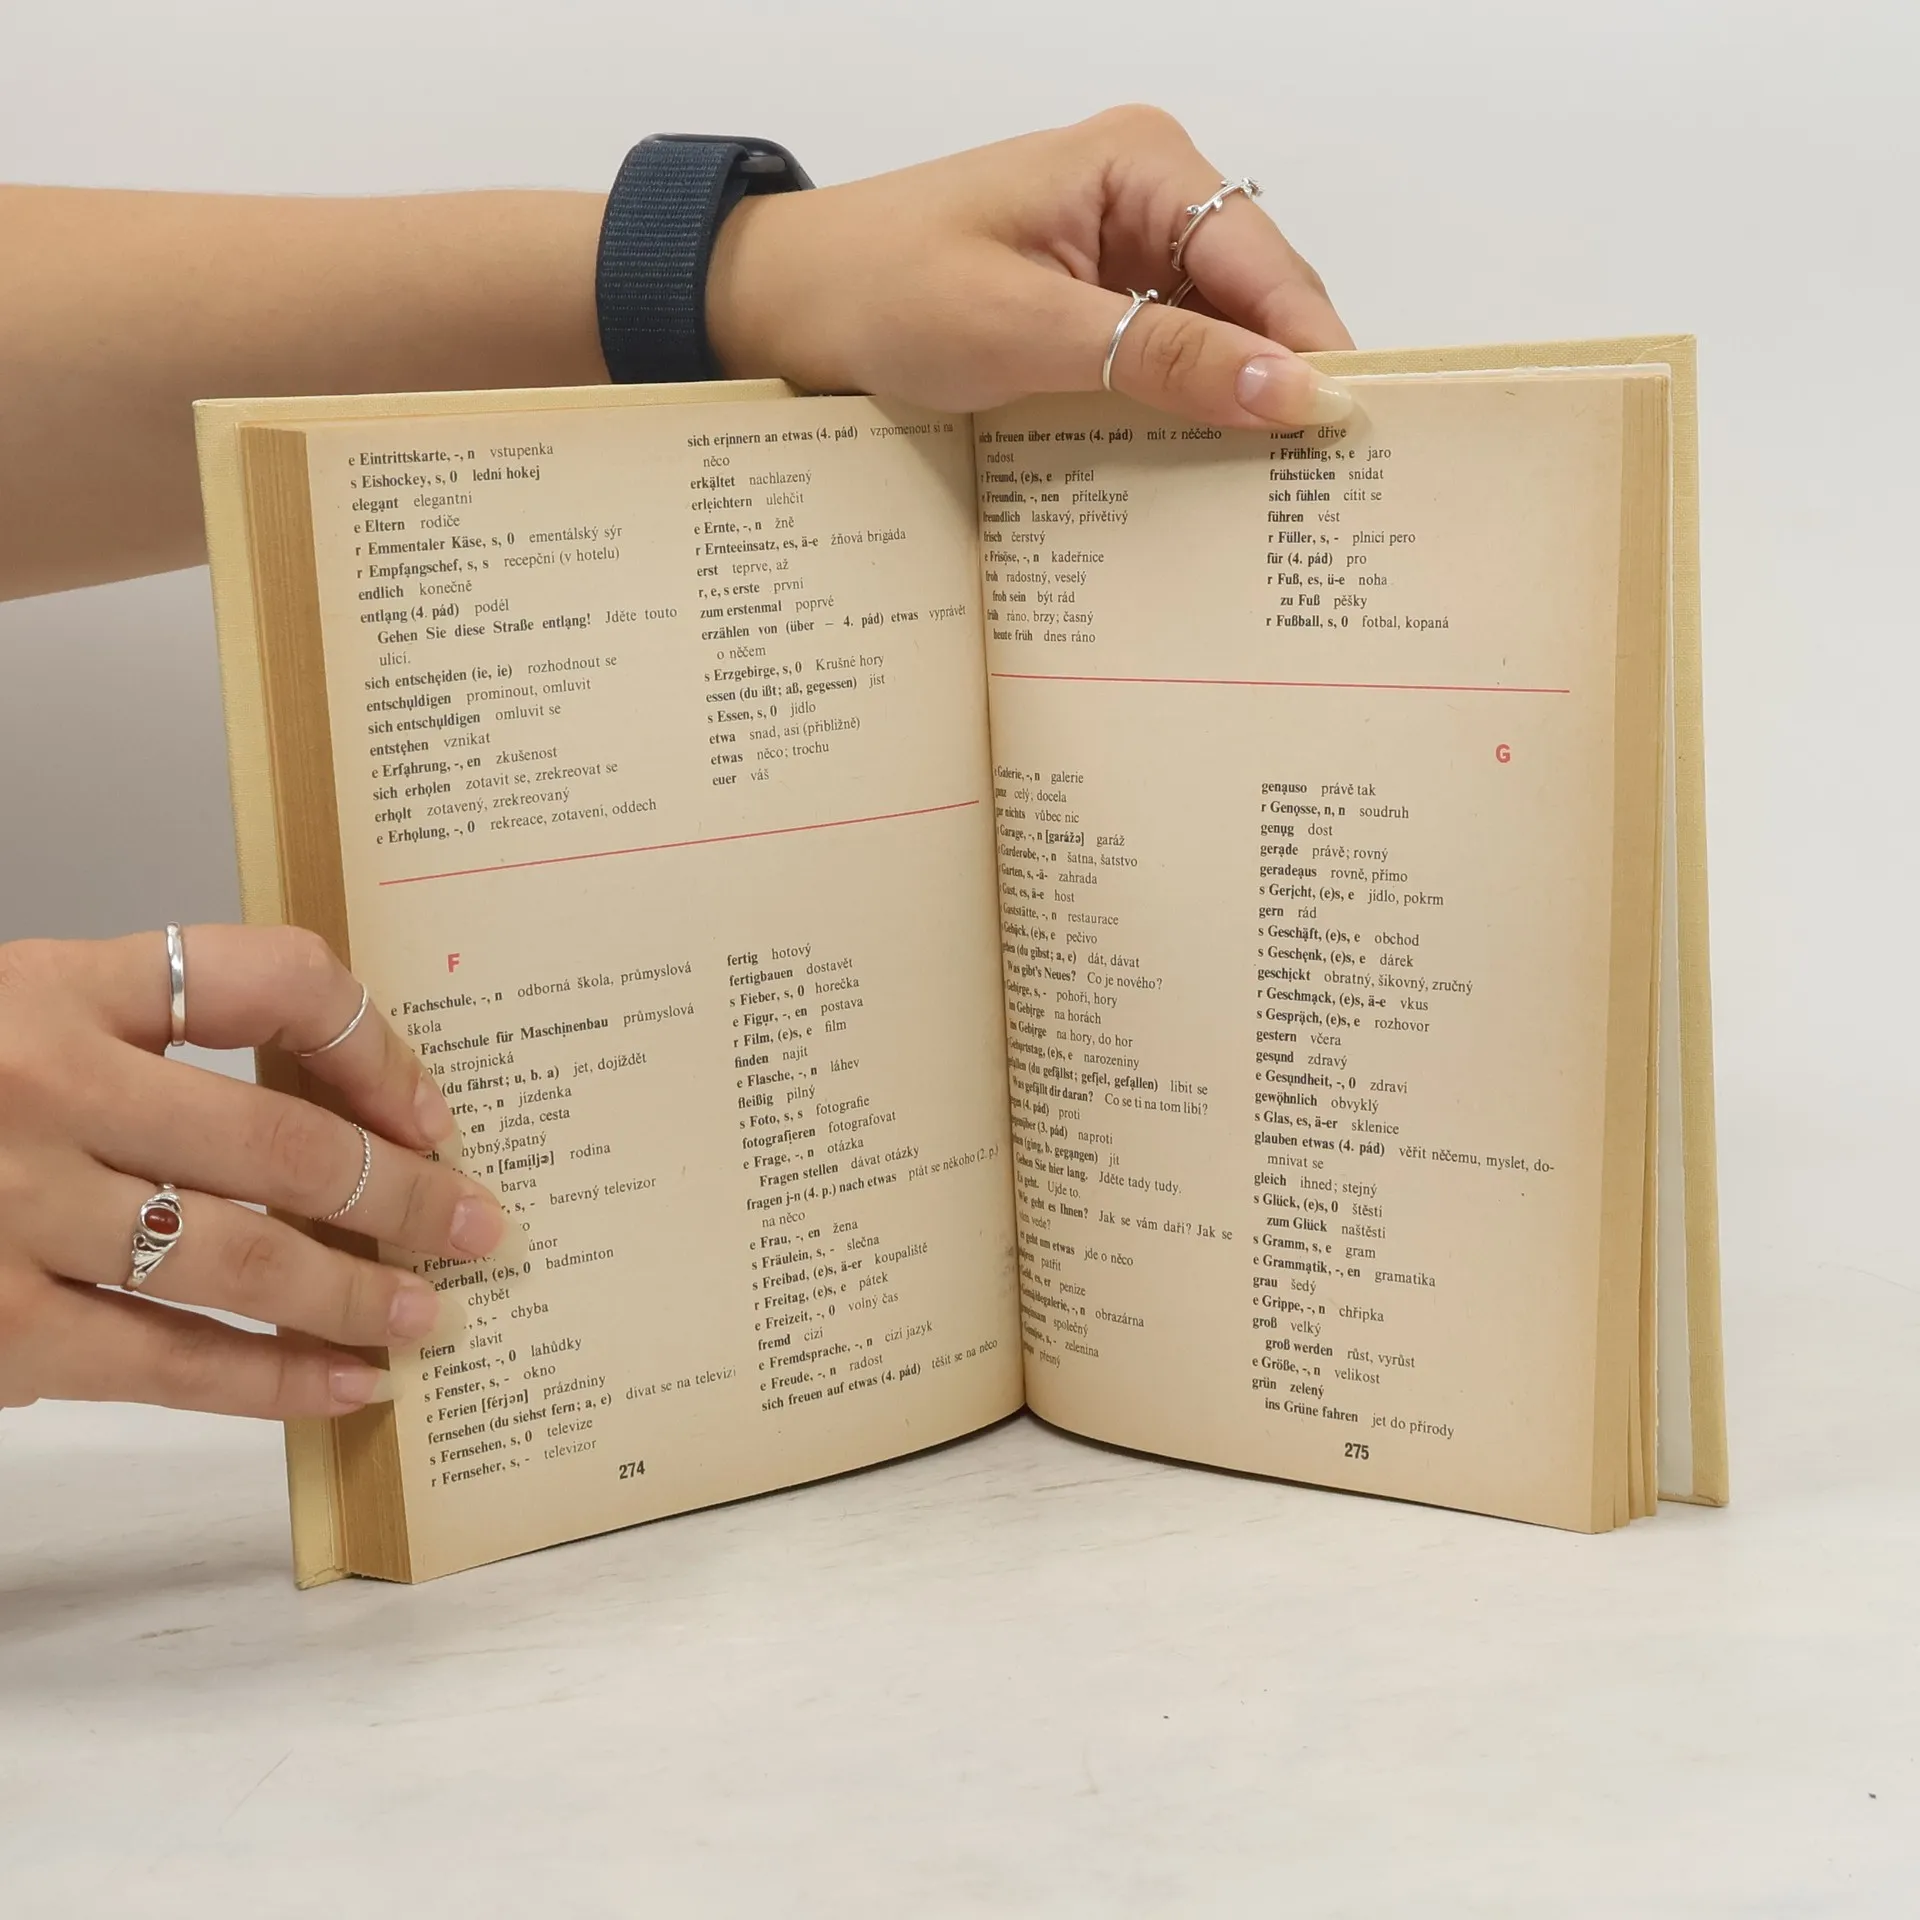 e Eintrittskarte, -, n vstupenka
s Eishockey, s, 0 lední hokej
elegant elegantní
e Eltern rodiče
r Emmentaler Käse, s, 0 ementálský sýr
r Empfangschef, s, s recepční (v hotelu)
endlich konečně
entlang (4. pád) podél
Gehen Sie diese Straße entlang! Jděte touto
ulicí.
sich entscheiden (ie, ie) rozhodnout se
entschuldigen prominout, omluvit
sich entschuldigen omluvit se
entstehen vznikat
e Erfahrung, -, en zkušenost
sich erholen zotavit se, zrekreovat se
erholt zotavený, zrekreovaný
e Erholung, -, 0 rekreace, zotavení, oddech
sich erinnern an etwas (4. pád) vzpomenout si na
něco
erkältet nachlazený
erleichtern ulehčit
e Ernte, -, n žně
r Ernteeinsatz, es, ä-e žňová brigáda
erst teprve, až
r, e, s erste první
zum erstenmal poprvé
erzählen von (über – 4. pád) etwas vyprávět
o něčem
s Erzgebirge, s, 0 Krušné hory
essen (du ißt; aß, gegessen) jíst
s Essen, s, 0 jídlo
etwa snad, asi (přibližně)
etwas něco; trochu
euer váš
F
e Fachschule, -, n odborná škola, průmyslová
škola
Fachschule für Maschinenbau průmyslová
strojnická
(du fährst; u, b. a) jet, dojíždět
-, n jízdenka
en jízda, cesta
špatný
-, n [familjə] rodina
barva
, s, - barevný televizor
únor
(e)s, 0 badminton
chybět
, s, - chyba
feiern slavit
e Feinkost, -, 0 lahůdky
s Fenster, s, - okno
e Ferien [férjən] prázdniny
fernsehen (du siehst fern; a, e) dívat se na televizi
s Fernsehen, s, 0 televize
r Fernseher, s, - televizor
fertig hotový
fertigbauen dostavět
s Fieber, s, 0 horečka
e Figur, -, en postava
r Film, (e)s, e film
finden najít
e Flasche, -, n láhev
fleißig pilný
s Foto, s, s fotografie
fotografieren fotografovat
e Frage, -, n otázka
Fragen stellen dávat otázky
fragen j-n (4. p.) nach etwas ptát se někoho (2. p.)
na něco
e Frau, -, en žena
s Fräulein, s, - slečna
s Freibad, (e)s, ä-er koupaliště
r Freitag, (e)s, e pátek
e Freizeit, -, 0 volný čas
fremd cizí
e Fremdsprache, -, n cizí jazyk
e Freude, -, n radost
sich freuen auf etwas (4. pád) těšit se na něco
274
sich freuen über etwas (4. pád) mít z něčeho
radost
r Freund, (e)s, e přítel
Freundin, -, nen přítelkyně
freundlich laskavý, přívětivý
frisch čerstvý
e Frisöse, -, n kadeřnice
froh radostný, veselý
froh sein být rád
früh ráno, brzy; časný
heute früh dnes ráno
früher dříve
r Frühling, s, e jaro
frühstücken snídat
sich fühlen cítit se
führen vést
r Füller, s, - plnicí pero
für (4. pád) pro
r Fuß, es, ü-e noha
zu Fuß pěšky
r Fußball, s, 0 fotbal, kopaná
G
Galerie, -, n galerie
ganz celý; docela
gar nichts vůbec nic
Garage, -, n [garážə] garáž
Garderobe, -, n šatna, šatstvo
Garten, s, -ä- zahrada
Gast, es, ä-e host
Gaststätte, -, n restaurace
Gebäck, (e)s, e pečivo
geben (du gibst; a, e) dát, dávat
Was gibt's Neues? Co je nového?
Gebirge, s, - pohoří, hory
im Gebirge na horách
ins Gebirge na hory, do hor
Geburtstag, (e)s, e narozeniny
gefallen (du gefällst; gefiel, gefallen) líbit se
Was gefällt dir daran? Co se ti na tom líbí?
gegen (4. pád) proti
gegenüber (3. pád) naproti
gehen (ging, b. gegangen) jít
Gehen Sie hier lang. Jděte tady tudy.
Es geht. Ujde to.
Wie geht es Ihnen? Jak se vám daří? Jak se
vám vede?
es geht um etwas jde o něco
gehören patřit
Geld, es, er peníze
Gemäldegalerie, -, n obrazárna
gemeinsam společný
Gemüse, s, - zelenina
genau přesný
genauso právě tak
r Genosse, n, n soudruh
genug dost
gerade právě; rovný
geradeaus rovně, přímo
s Gericht, (e)s, e jídlo, pokrm
gern rád
s Geschäft, (e)s, e obchod
s Geschenk, (e)s, e dárek
geschickt obratný, šikovný, zručný
r Geschmack, (e)s, ä-e vkus
s Gespräch, (e)s, e rozhovor
gestern včera
gesund zdravý
e Gesundheit, -, 0 zdraví
gewöhnlich obvyklý
s Glas, es, ä-er sklenice
glauben etwas (4. pád) věřit něčemu, myslet, do-
mnívat se
gleich ihned; stejný
s Glück, (e)s, 0 štěstí
zum Glück naštěstí
s Gramm, s, e gram
e Grammatik, -, en gramatika
grau šedý
e Grippe, -, n chřipka
groß velký
groß werden růst, vyrůst
e Größe, -, n velikost
grün zelený
ins Grüne fahren jet do přírody
275